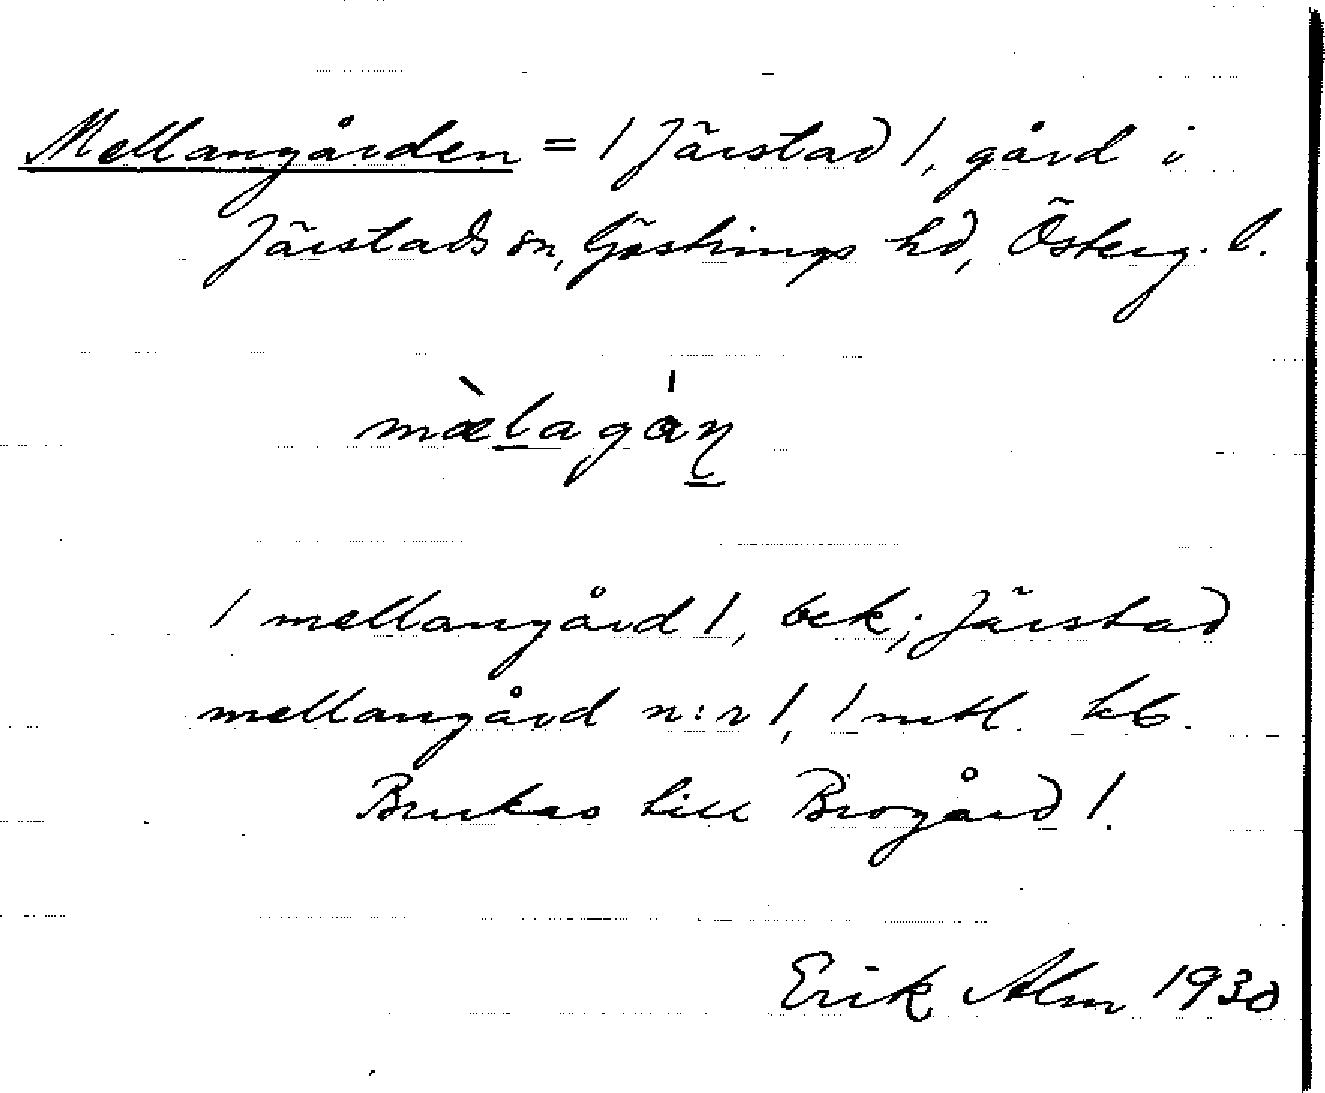 Mellangården = / Järstad /, gård i
Järstads sn, Göstrings hd, Österg. l.
mæ̀lagán
/ mellangård /, bek; Järstad
mellangård n:r /, / mtl. kb.
Brukas till Brogård /.
Erik Alm 1930